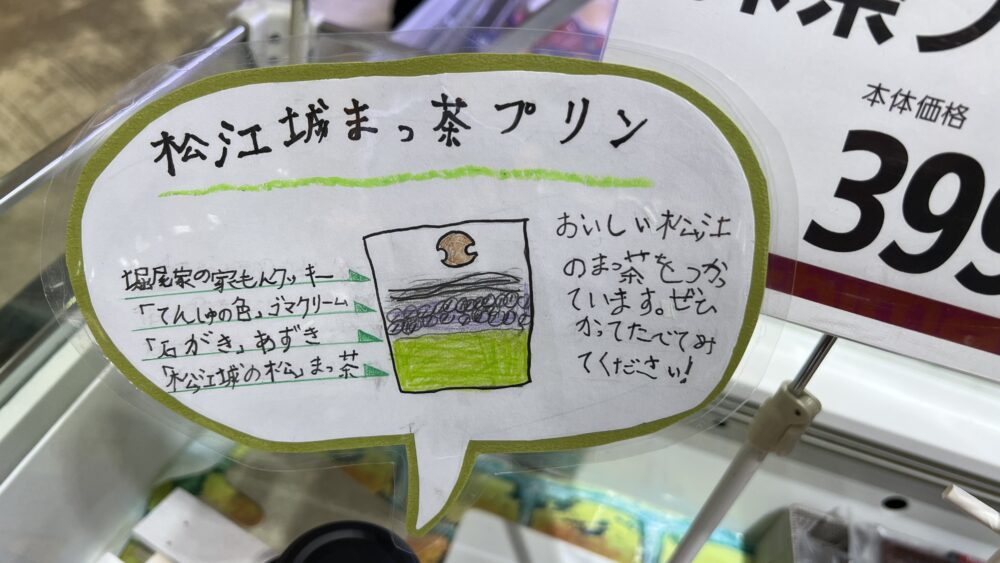 松江城まっ茶プリン
堀尾家の家もんクッキー
「てんしゅの色」ゴマクリーム
「石がき」あずき
「松江城の松」まっ茶
おいしい松江
のまっ茶をつかっ
ています。ぜひ
かってたべてみ
てください!
本体価格
399